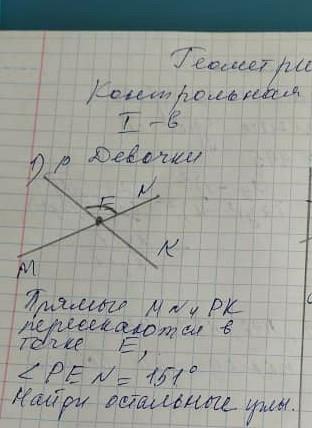 Геометри
Контрольная
I - в
Девочки
1) P
E N
M K
Прямые MN и PK
пересекаются в
точке E,
∠PEN = 151°
Найди остальные углы.